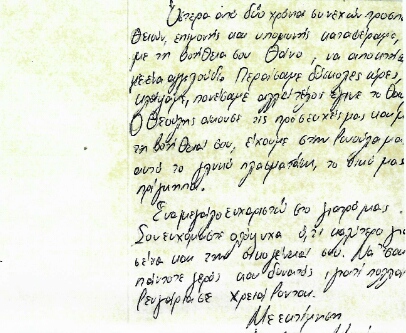 Ύστερα από δύο χρόνια συνεχών προσπα
θειών, επιμονής και υπομονής καταφέραμε,
με τη βοήθειά σου Θάνο, να αποκτήσ
με ένα αγγελούδι. Περάσαμε δύσκολες ώρες,
κλάψαμε, πονέσαμε αλλά τέλος έγινε το θα
Ο Θεούλης άκουσε τις προσευχές μας και μ
τη βοήθειά σου, έχουμε στην μας
αυτό το γλυκό πλασματάκι, το δικό μας
πρίγκηπα.
Ένα μεγάλο ευχαριστώ στο γιατρό μας.
Σου ευχόμαστε ολόψυχα ό,τι καλύτερο για
σένα και την οικογένειά σου. Να 'σαι
πάντοτε γερός και δυνατός γιατί πολλοί
ζευγάρια σε χρειάζονται.
Με εκτίμηση